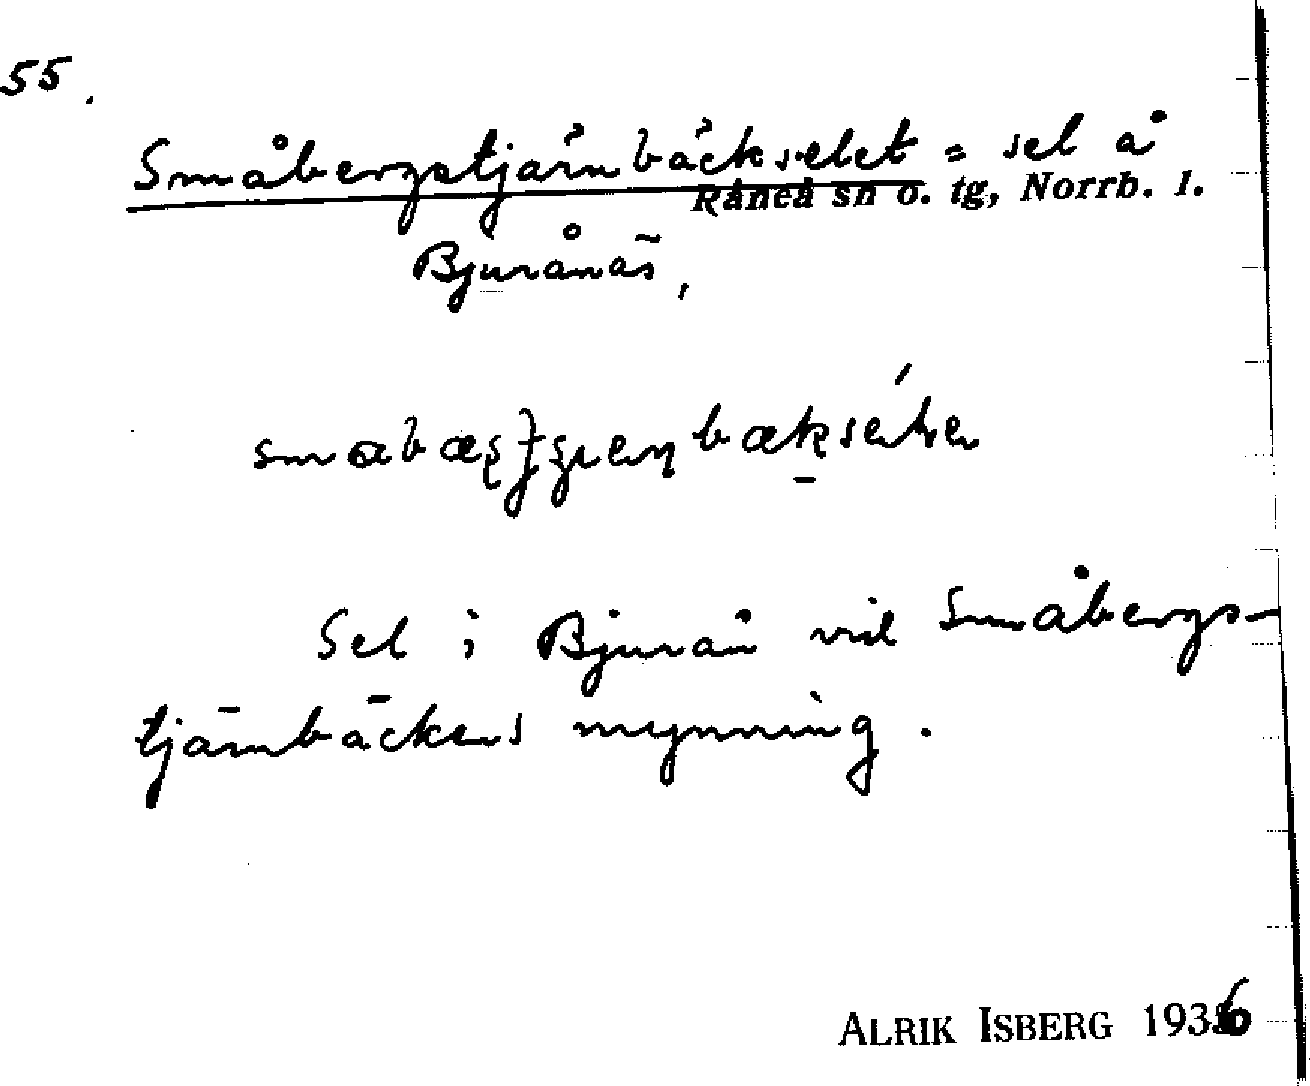 55.
Småbergstjärnbäckselet = sel å
Råneå sn o. tg, Norrb. l.
Bjurånäs,
Sel i Bjurån vid Småbergs-
tjärnbäckens mynning.
ALRIK ISBERG 1936